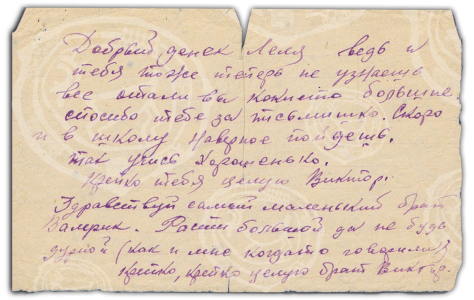 Добрый денек Леля ведь и
тебя тоже теперь не узнаешь
все стали вы какието большие
спосибо тебе за письмишко. Скоро
и в школу наверное пойдешь.
так учись хорошенько.
Крепко тебя целую Виктор.
Здравствуй самый маленький брат
Валерик. Расти большой да не будь
дурой (как и мне когдато говорили)
крепко, крепко целую брат Виктор.